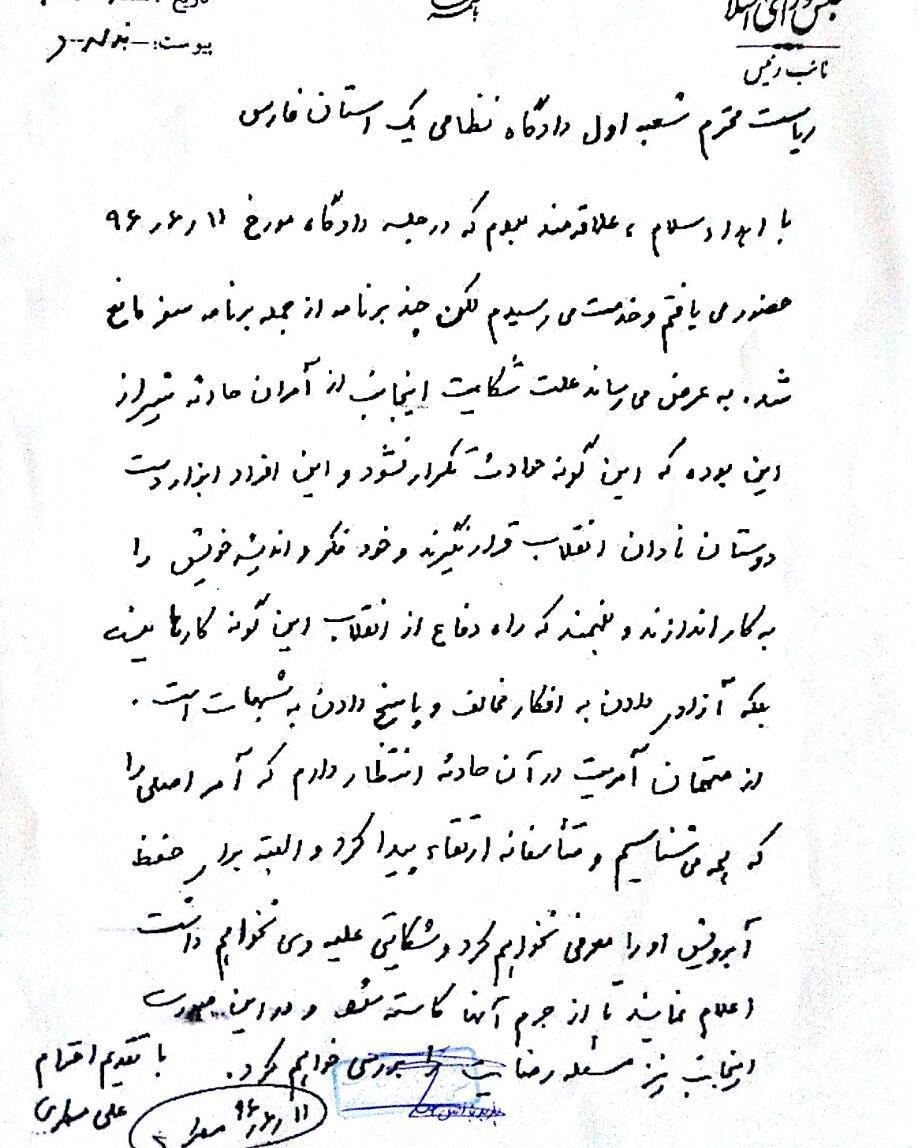 مجلس شورای اسلامی
تاریخ:
پیوست: ندارد
نائب رئیس
ریاست محترم شعبه اول دادگاه نظامی یک استان فارس
با اهداء سلام ، علاقه‌مند بودم که در جلسه دادگاه مورخ ۹۶ر۶ر۱۱
حضور می یافتم و خدمت می رسیدم لکن چند برنامه از جمله برنامه سفر مانع
شد. به عرض می رساند علت شکایت اینجانب از آمران حادثه شیراز
این بوده که این گونه حوادث تکرار نشود و این افراد ابزار دست
دوستان نادان انقلاب قرار نگیرند و خود فکر و اندیشه خویش را
به کار اندازند و بفهمند که راه دفاع از انقلاب این گونه کارها نیست
بلکه آزادی دادن به افکار مخالف و پاسخ دادن به شبهات است .
از متهمان آمریت در آن حادثه انتظار دارم که آمر اصلی را
که همه می شناسیم و متأسفانه ارتقاء پیدا کرد و البته برای حفظ
آبرویش او را معرفی نخواهم کرد و شکایتی علیه وی نخواهم داشت
اعلام نمایند تا از جرم آنها کاسته شود و در این صورت
اینجانب نیز مسئله رضایت را بررسی خواهم کرد.
با تقدیم احترام
علی مطهری
۹۶ر۶ر۱۱